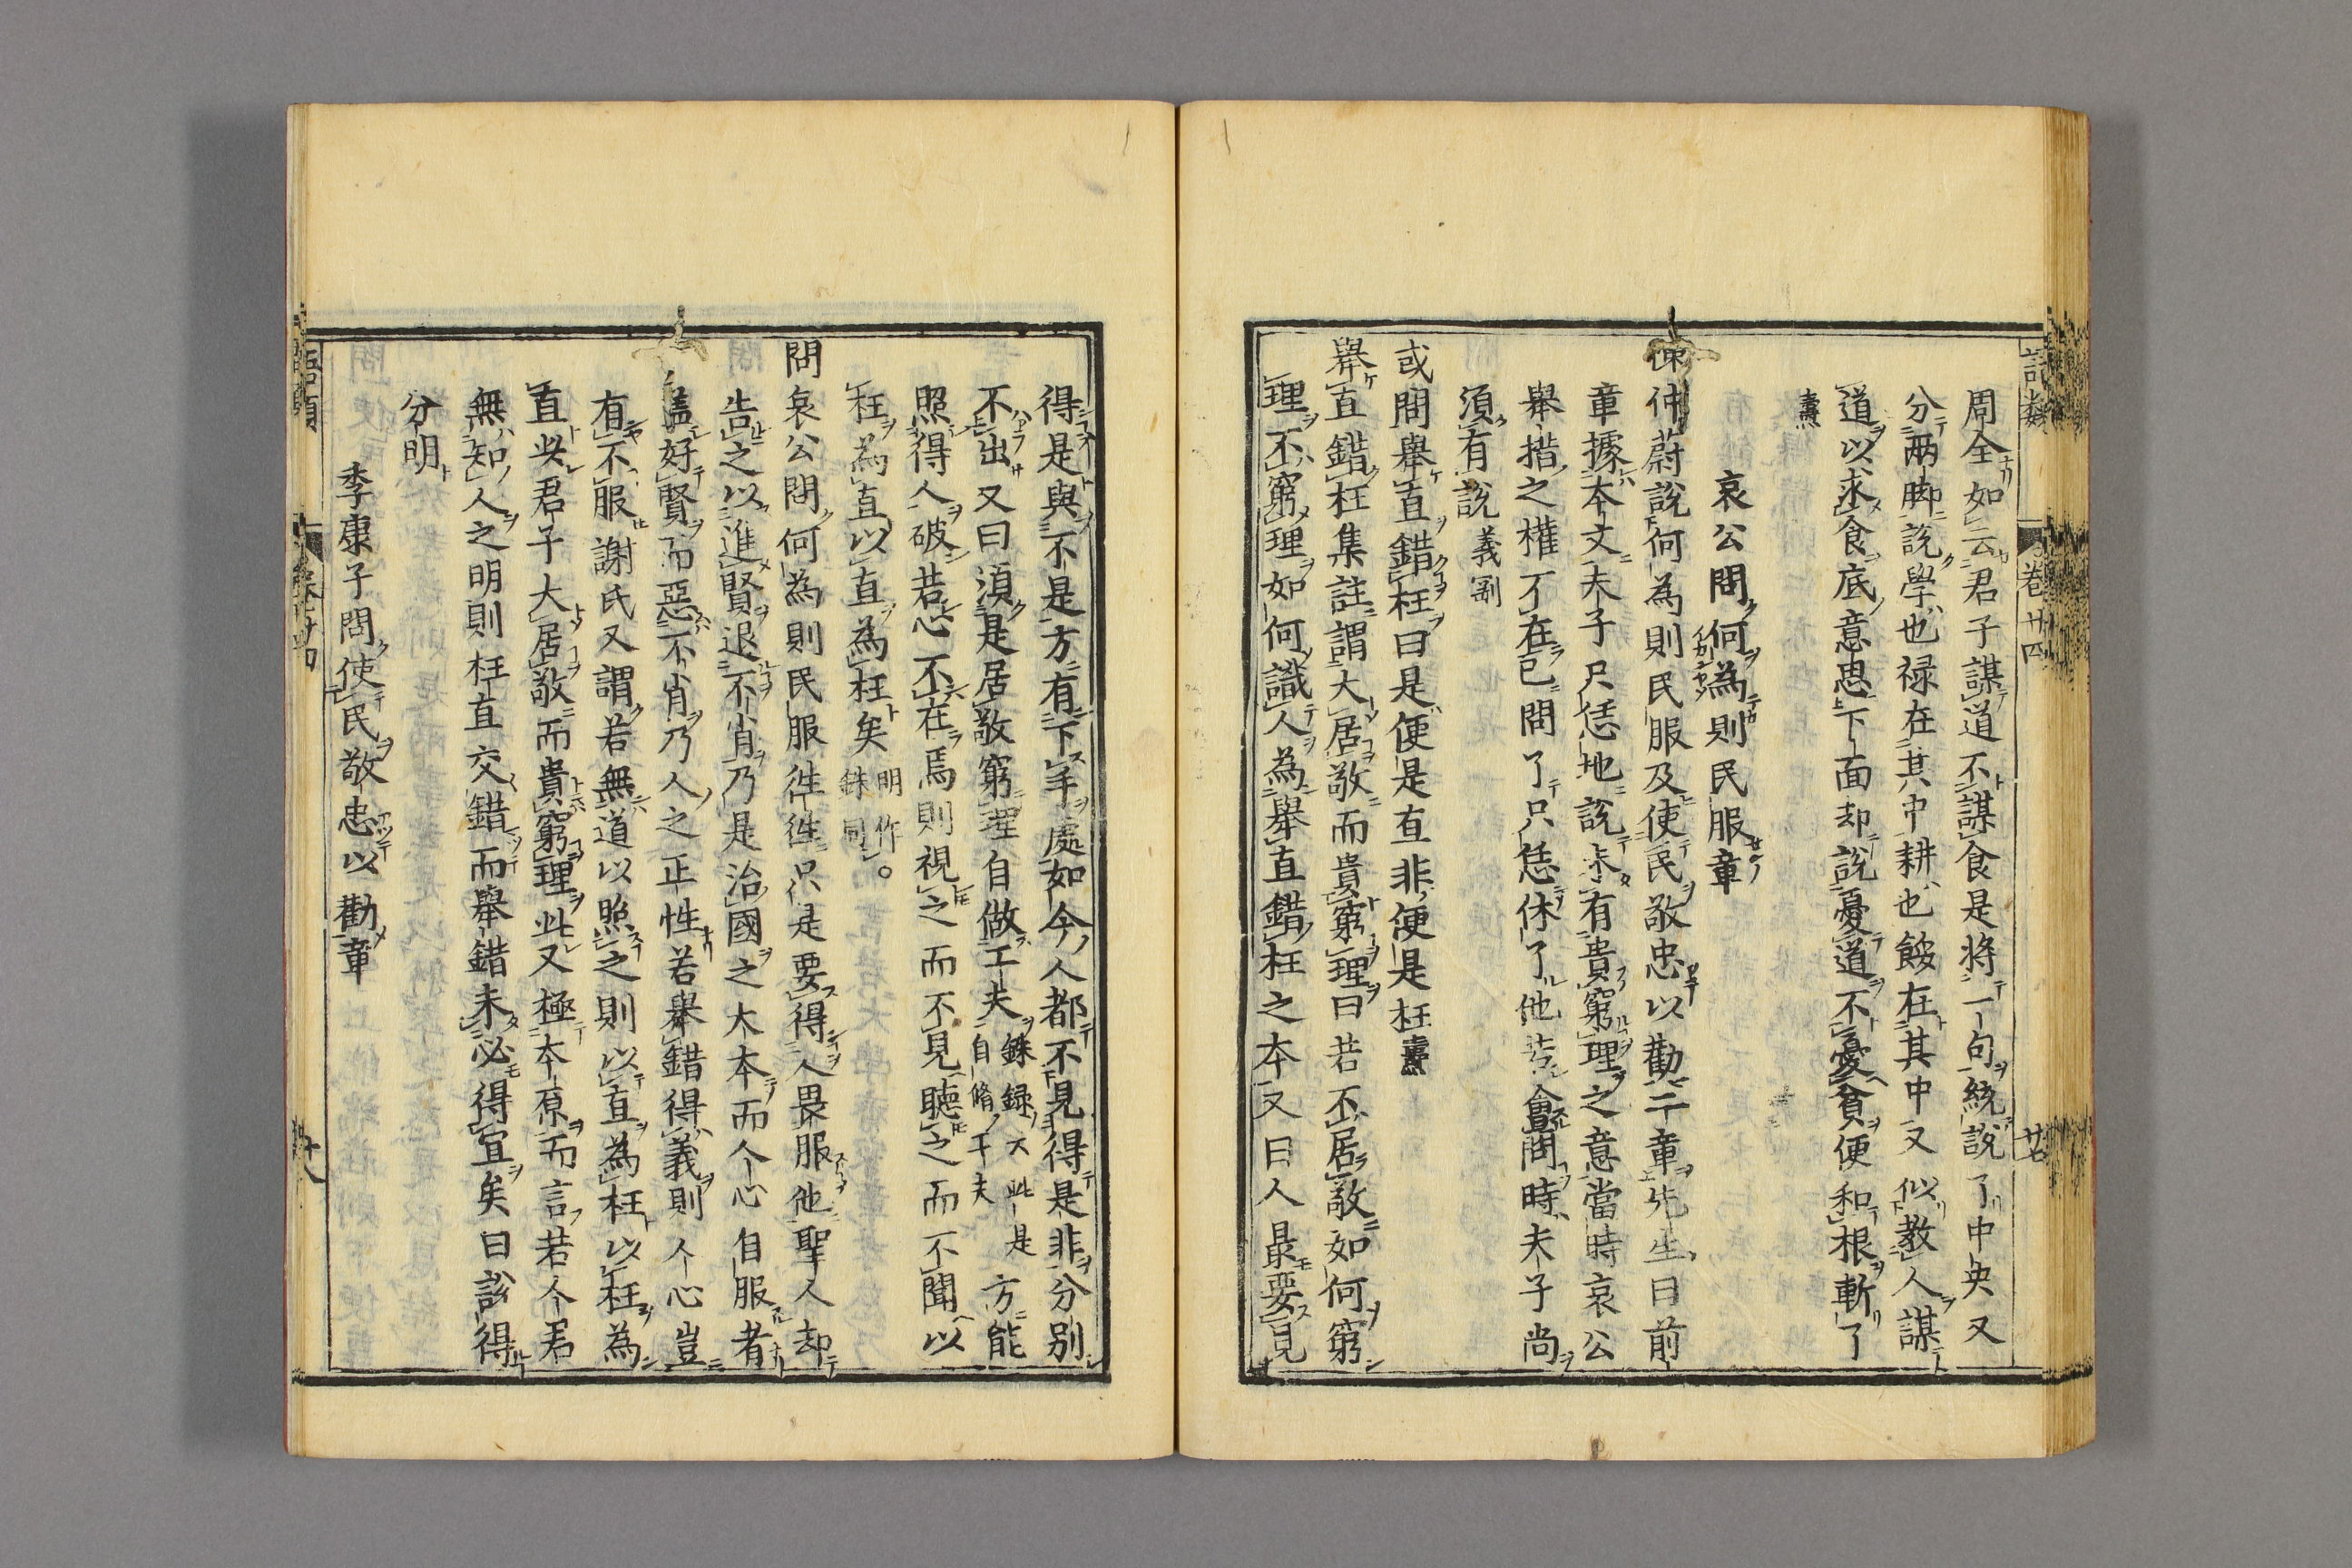 語類
卷廿四
廿七
周全如云君子謀道不謀食是將一句統說了中央又
分兩脚說學也祿在其中耕也餒在其中又似教人謀
道以求食底意思下面却說憂道不憂貧便和根斬了
燾
哀公問何為則民服章
陳仲蔚說何為則民服及使民敬忠以勸二章先生曰前
章據本文夫子只恁地說未有貴窮理之意當時哀公
舉措之權不在己問了只恁休了他若會問時夫子尚
須有說義剛
或問舉直錯枉曰是便是直非便是枉燾
舉直錯枉集註謂大居敬而貴窮理曰若不居敬如何窮
理不窮理如何識人為舉直錯枉之本又曰人最要見
得是與不是方有下手處如今人都不見得是非分別
不出又曰須是居敬窮理自做工夫銖錄大此是自脩工夫方能
照得人破若心不在焉則視之而不見聽之而不聞以
枉為直以直為枉矣明作。銖同
問哀公問何為則民服徃徃只是要得人畏服他聖人却
告之以進賢退不肖乃是治國之大本而人心自服者
蓋好賢而惡不肖乃人之正性若舉錯得義則人心豈
有不服謝氏又謂若無道以照之則以直為枉以枉為
直此君子大居敬而貴窮理此又極本原而言若人君
無知人之明則枉直交錯而舉錯未必得宜矣曰說得
分明
季康子問使民敬忠以勸章
語類
卷廿四
廿八